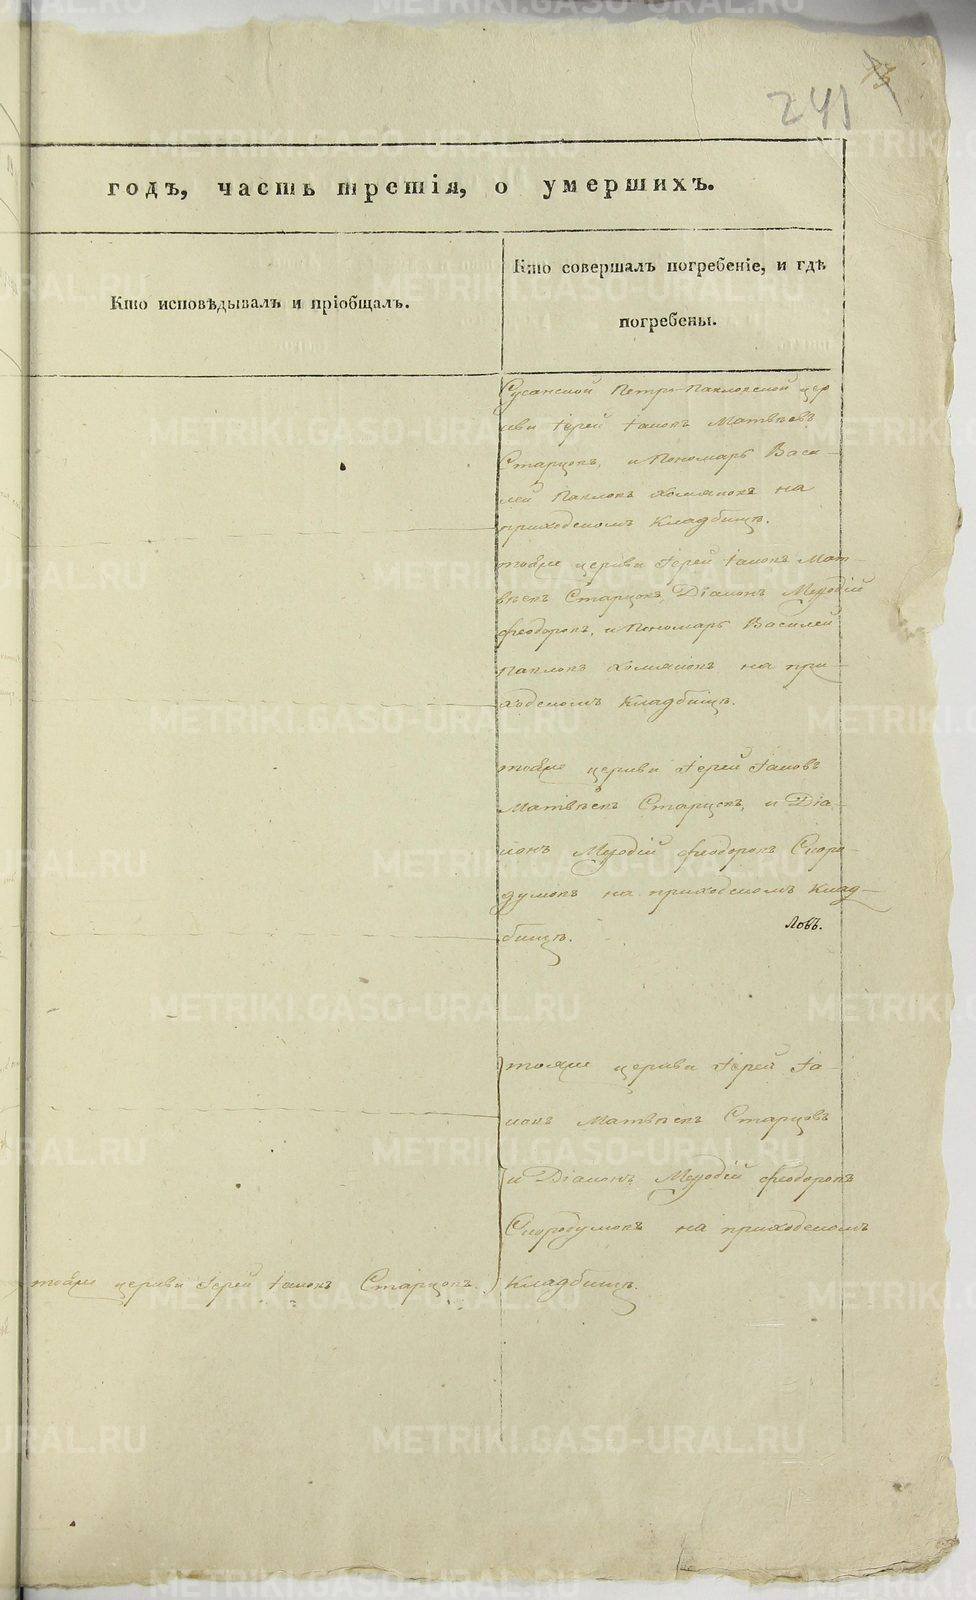 241
годъ, часть третія, о умершихъ.
Кто исповѣдывалъ и пріобщалъ.
Кто совершалъ погребеніе, и гдѣ
погребены.
Сусанской Петро-Павловской цер
кви Іерей Іаковъ Матвѣевъ
Старцовъ, и Пономарь Васи-
лей Павловъ Хомяковъ на
приходскомъ кладбищѣ.
тойже церкви Іерей Іаковъ Мат-
вѣевъ Старцовъ, Діаконъ Меѳодій
Феодоровъ, и Пономарь Василей
Павловъ Хомяковъ на при-
ходскомъ кладбищѣ.
тойже церкви Іерей Іаковъ
Матвѣевъ Старцовъ, и Діа-
конъ Меѳодій Феодоровъ Скоро-
думовъ на приходскомъ клад-
бищѣ.
ловъ.
тояже церкви Іерей Іа-
ковъ Матвѣевъ Старцовъ
и Діаконъ Меѳодій Феодоровъ
Скородумовъ на приходскомъ
тойже церкви Іерей Іаковъ Старцовъ. кладбищѣ.
METRIKI.GASO-URAL.RU